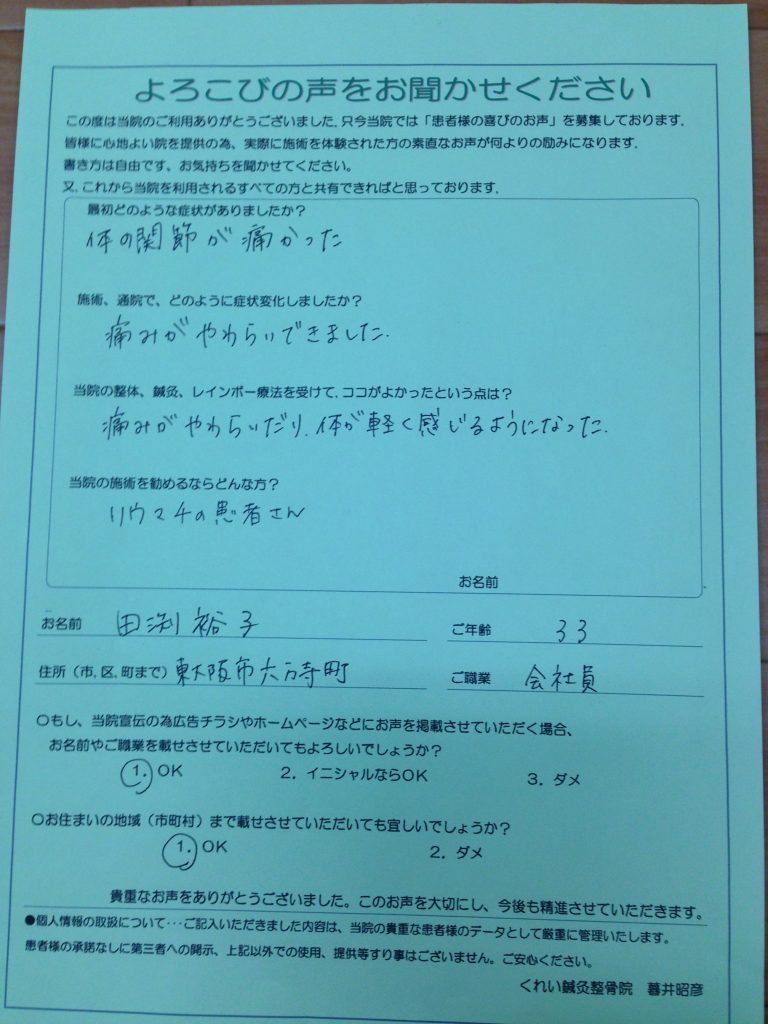 よろこびの声をお聞かせください
この度は当院のご利用ありがとうございました。只今当院では「患者様の喜びのお声」を募集しております。
皆様に心地よい院を提供の為、実際に施術を体験された方の素直なお声が何よりの励みになります。
書き方は自由です、お気持ちを聞かせてください。
又、これから当院を利用されるすべての方と共有できればと思っております。
最初どのような症状がありましたか？
体の関節が痛かった
施術、通院で、どのように症状変化しましたか？
痛みがやわらいできました。
当院の整体、鍼灸、レインボー療法を受けて、ココがよかったという点は？
痛みがやわらいだり、体が軽く感じるようになった。
当院の施術を勧めるならどんな方？
リウマチの患者さん
お名前
お名前 田渕裕子 ご年齢 33
住所（市、区、町まで）東大阪市六万寺町 ご職業 会社員
〇もし、当院宣伝の為広告チラシやホームページなどにお声を掲載させていただく場合、
お名前やご職業を載せさせていただいてもよろしいでしょうか？
1．OK 2．イニシャルならOK 3．ダメ
〇お住まいの地域（市町村）まで載せさせていただいても宜しいでしょうか？
1．OK 2．ダメ
貴重なお声をありがとうございました。このお声を大切にし、今後も精進させていただきます。
●個人情報の取扱について・・・ご記入いただきました内容は、当院の貴重な患者様のデータとして厳重に管理いたします。
患者様の承諾なしに第三者への開示、上記以外での使用、提供等すり事はございません。ご安心ください。
くれい鍼灸整骨院 暮井昭彦